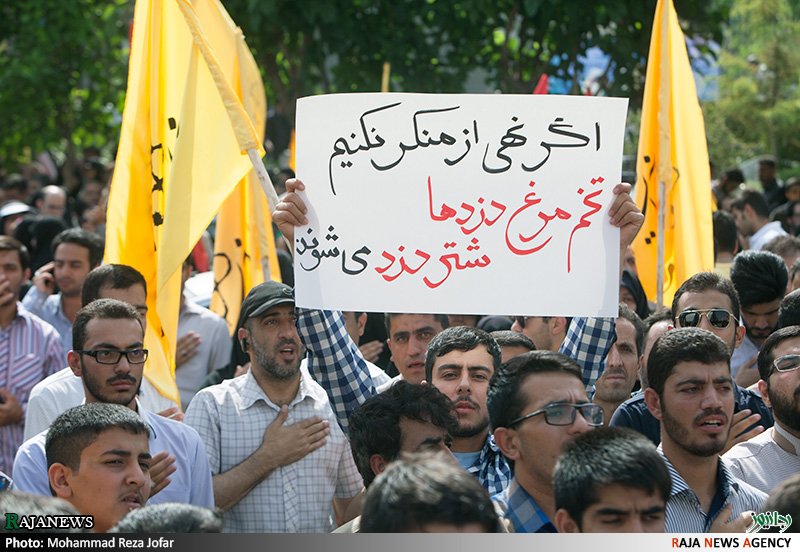 اگر نهی از منکر نکنیم
تخم مرغ دزدها
شتر دزد می شوند
RAJANEWS
Photo: Mohammad Reza Jofar
RAJA NEWS AGENCY
رجانیوز